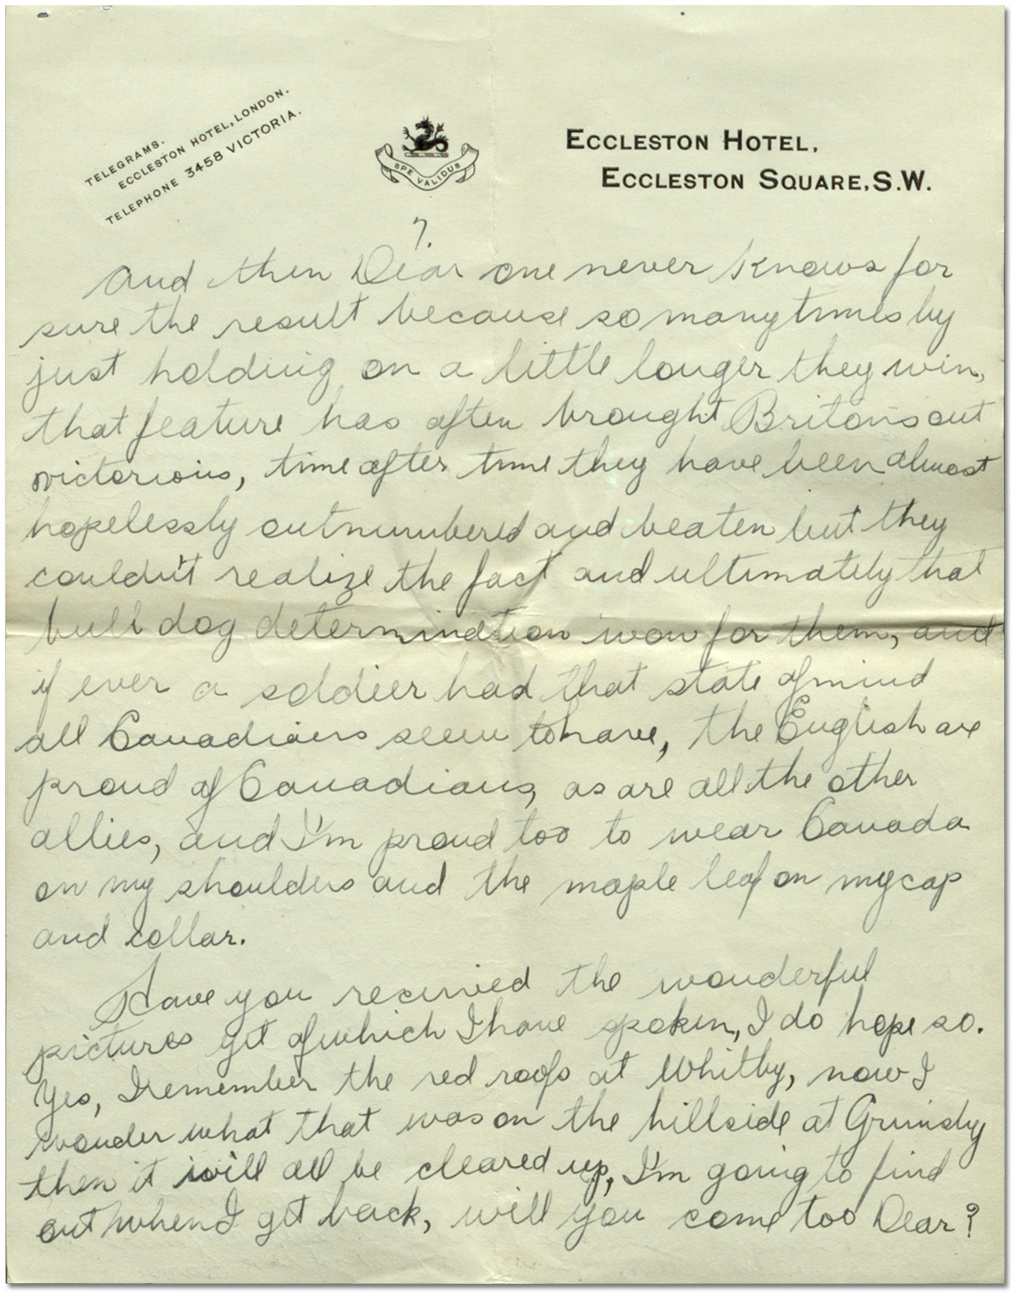 TELEGRAMS.
ECCLESTON HOTEL, LONDON.
TELEPHONE 3458 VICTORIA.
SPE VALIDUS
ECCLESTON HOTEL,
ECCLESTON SQUARE, S.W.
7.
And then Dear one never knows for
sure the result because so many times by
just holding on a little longer they win,
that feature has often brought Britons out
victorious, time after time they have been almost
hopelessly outnumbered and beaten but they
couldn't realize the fact and ultimately that
bull dog determination won for them, and
if ever a soldier had that state of mind
all Canadians seem to have, the English are
proud of Canadians, as are all the other
allies, and I'm proud too to wear Canada
on my shoulders and the maple leaf on my cap
and collar.
Have you received the wonderful
pictures yet of which I have spoken, I do hope so.
Yes, I remember the red roofs at Whitby, now I
wonder what that was on the hillside at Grimsby
then it will all be cleared up, I'm going to find
out when I get back, will you come too Dear?